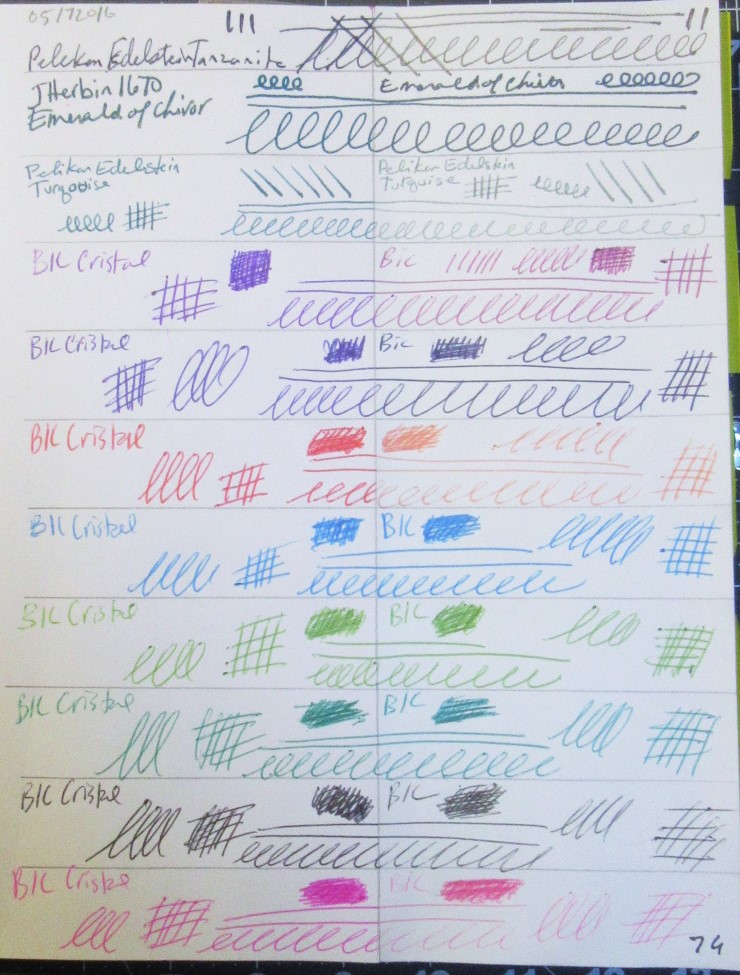 05/72016
Pelikan Edelstein Tanzanite
JHerbin 1670
Emerald of Chivor
Emerald of Chivor
Pelikan Edelstein
Turqoise
Pelikan Edelstein
Turquoise
BIC Cristal
Bic
BIC Cristal
Bic
BIC Cristal
BIC Cristal
BIC
BIC Cristal
BIC
BIC Cristal
BIC
BIC Cristal
BIC
BIC Cristal
BIC
74